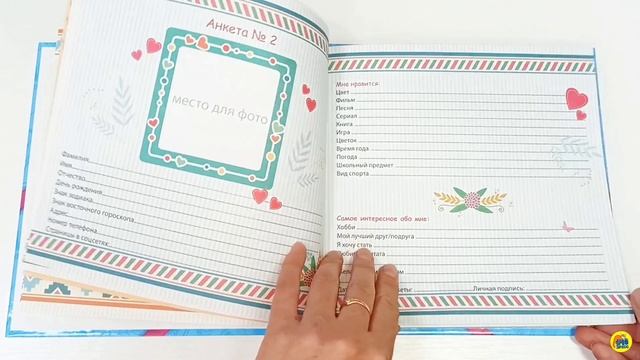 Анкета № 2
место для фото
Фамилия
Имя
Отчество
День рождения
Знак зодиака
Знак восточного гороскопа
Адрес
Номер телефона
Страницы в соцсетях:
Мне нравится:
Цвет
Фильм
Песня
Сериал
Книга
Игра
Цветок
Время года
Погода
Школьный предмет
Вид спорта
Самое интересное обо мне:
Хобби
Мой лучший друг/подруга
Я хочу стать
Личная подпись: